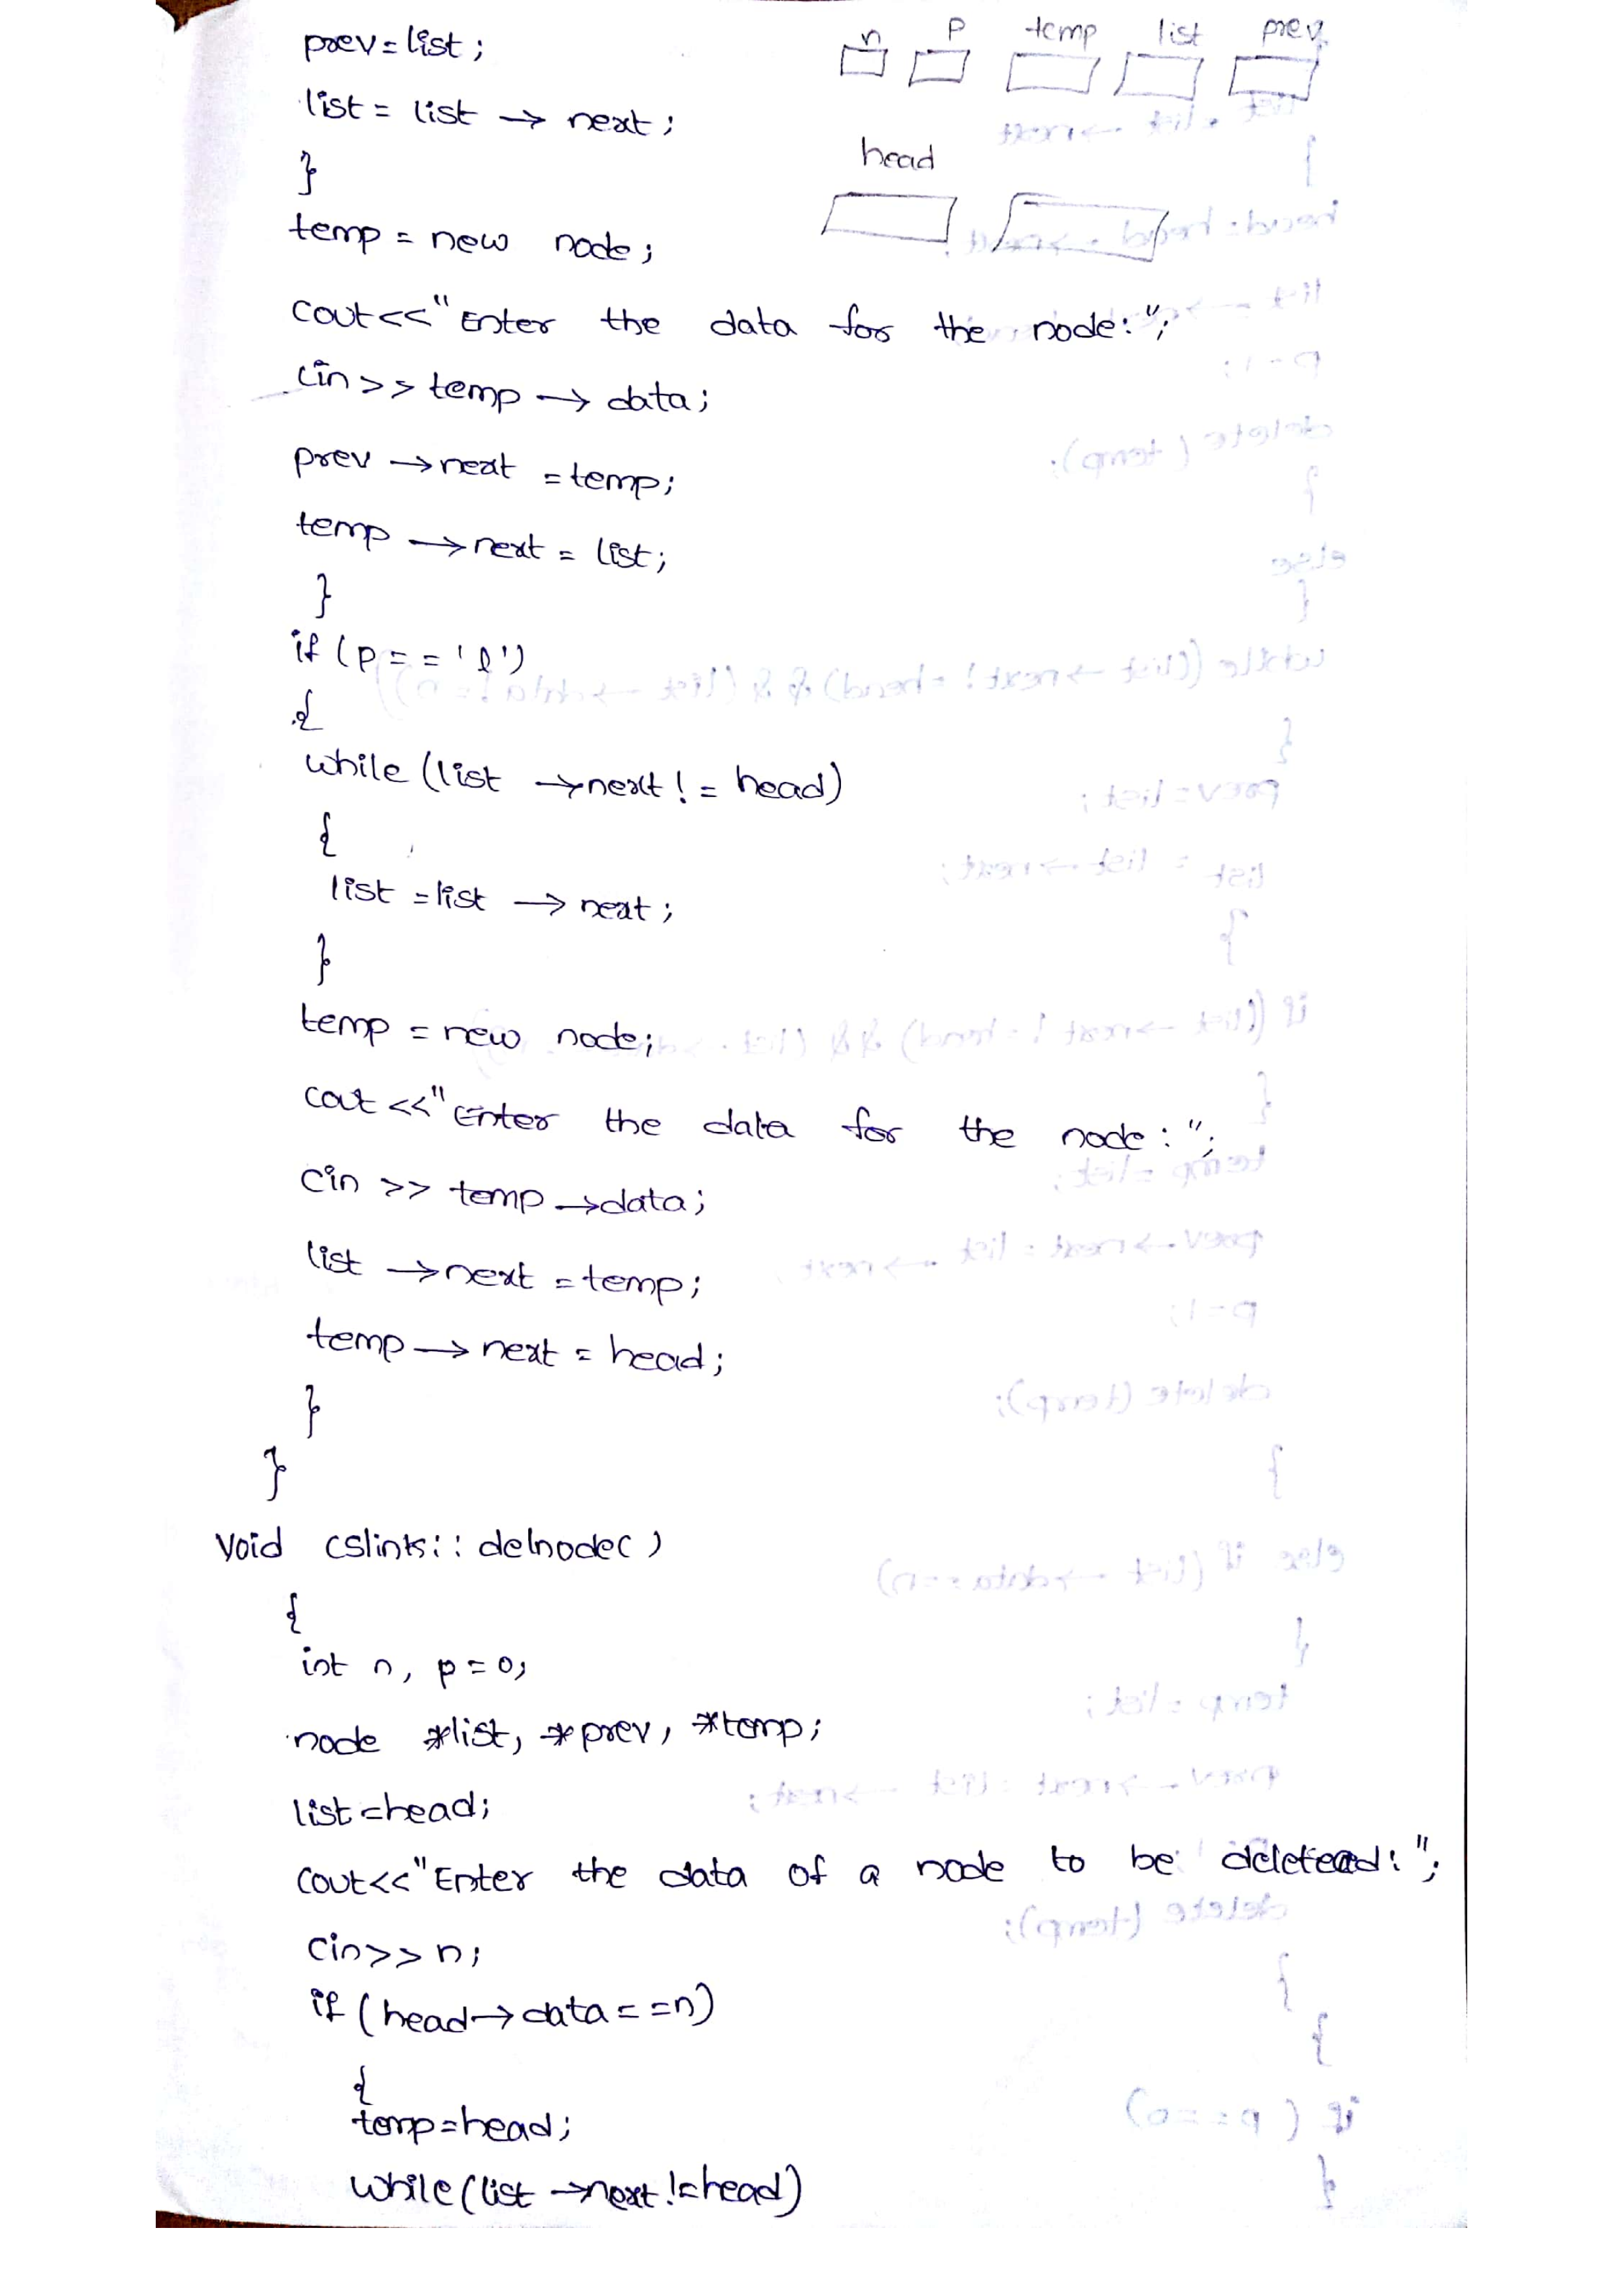 prev = list;
list = list → next;
}
temp = new node;
cout<<"Enter the data for the node:";
cin>>temp → data;
prev → next = temp;
temp → next = list;
}
if (p == 'l')
{
while (list → next != head)
{
list = list → next;
}
temp = new node;
cout <<"Enter the data for the node:";
cin >> temp → data;
list → next = temp;
temp → next = head;
}
}
void cslinks:: delnode( )
{
int n, p=0;
node *list, *prev, *temp;
list=head;
cout<<"Enter the data of a node to be deleted:";
cin>>n;
if (head→data==n)
{
temp=head;
while(list →next!=head)
n p temp list prev
head